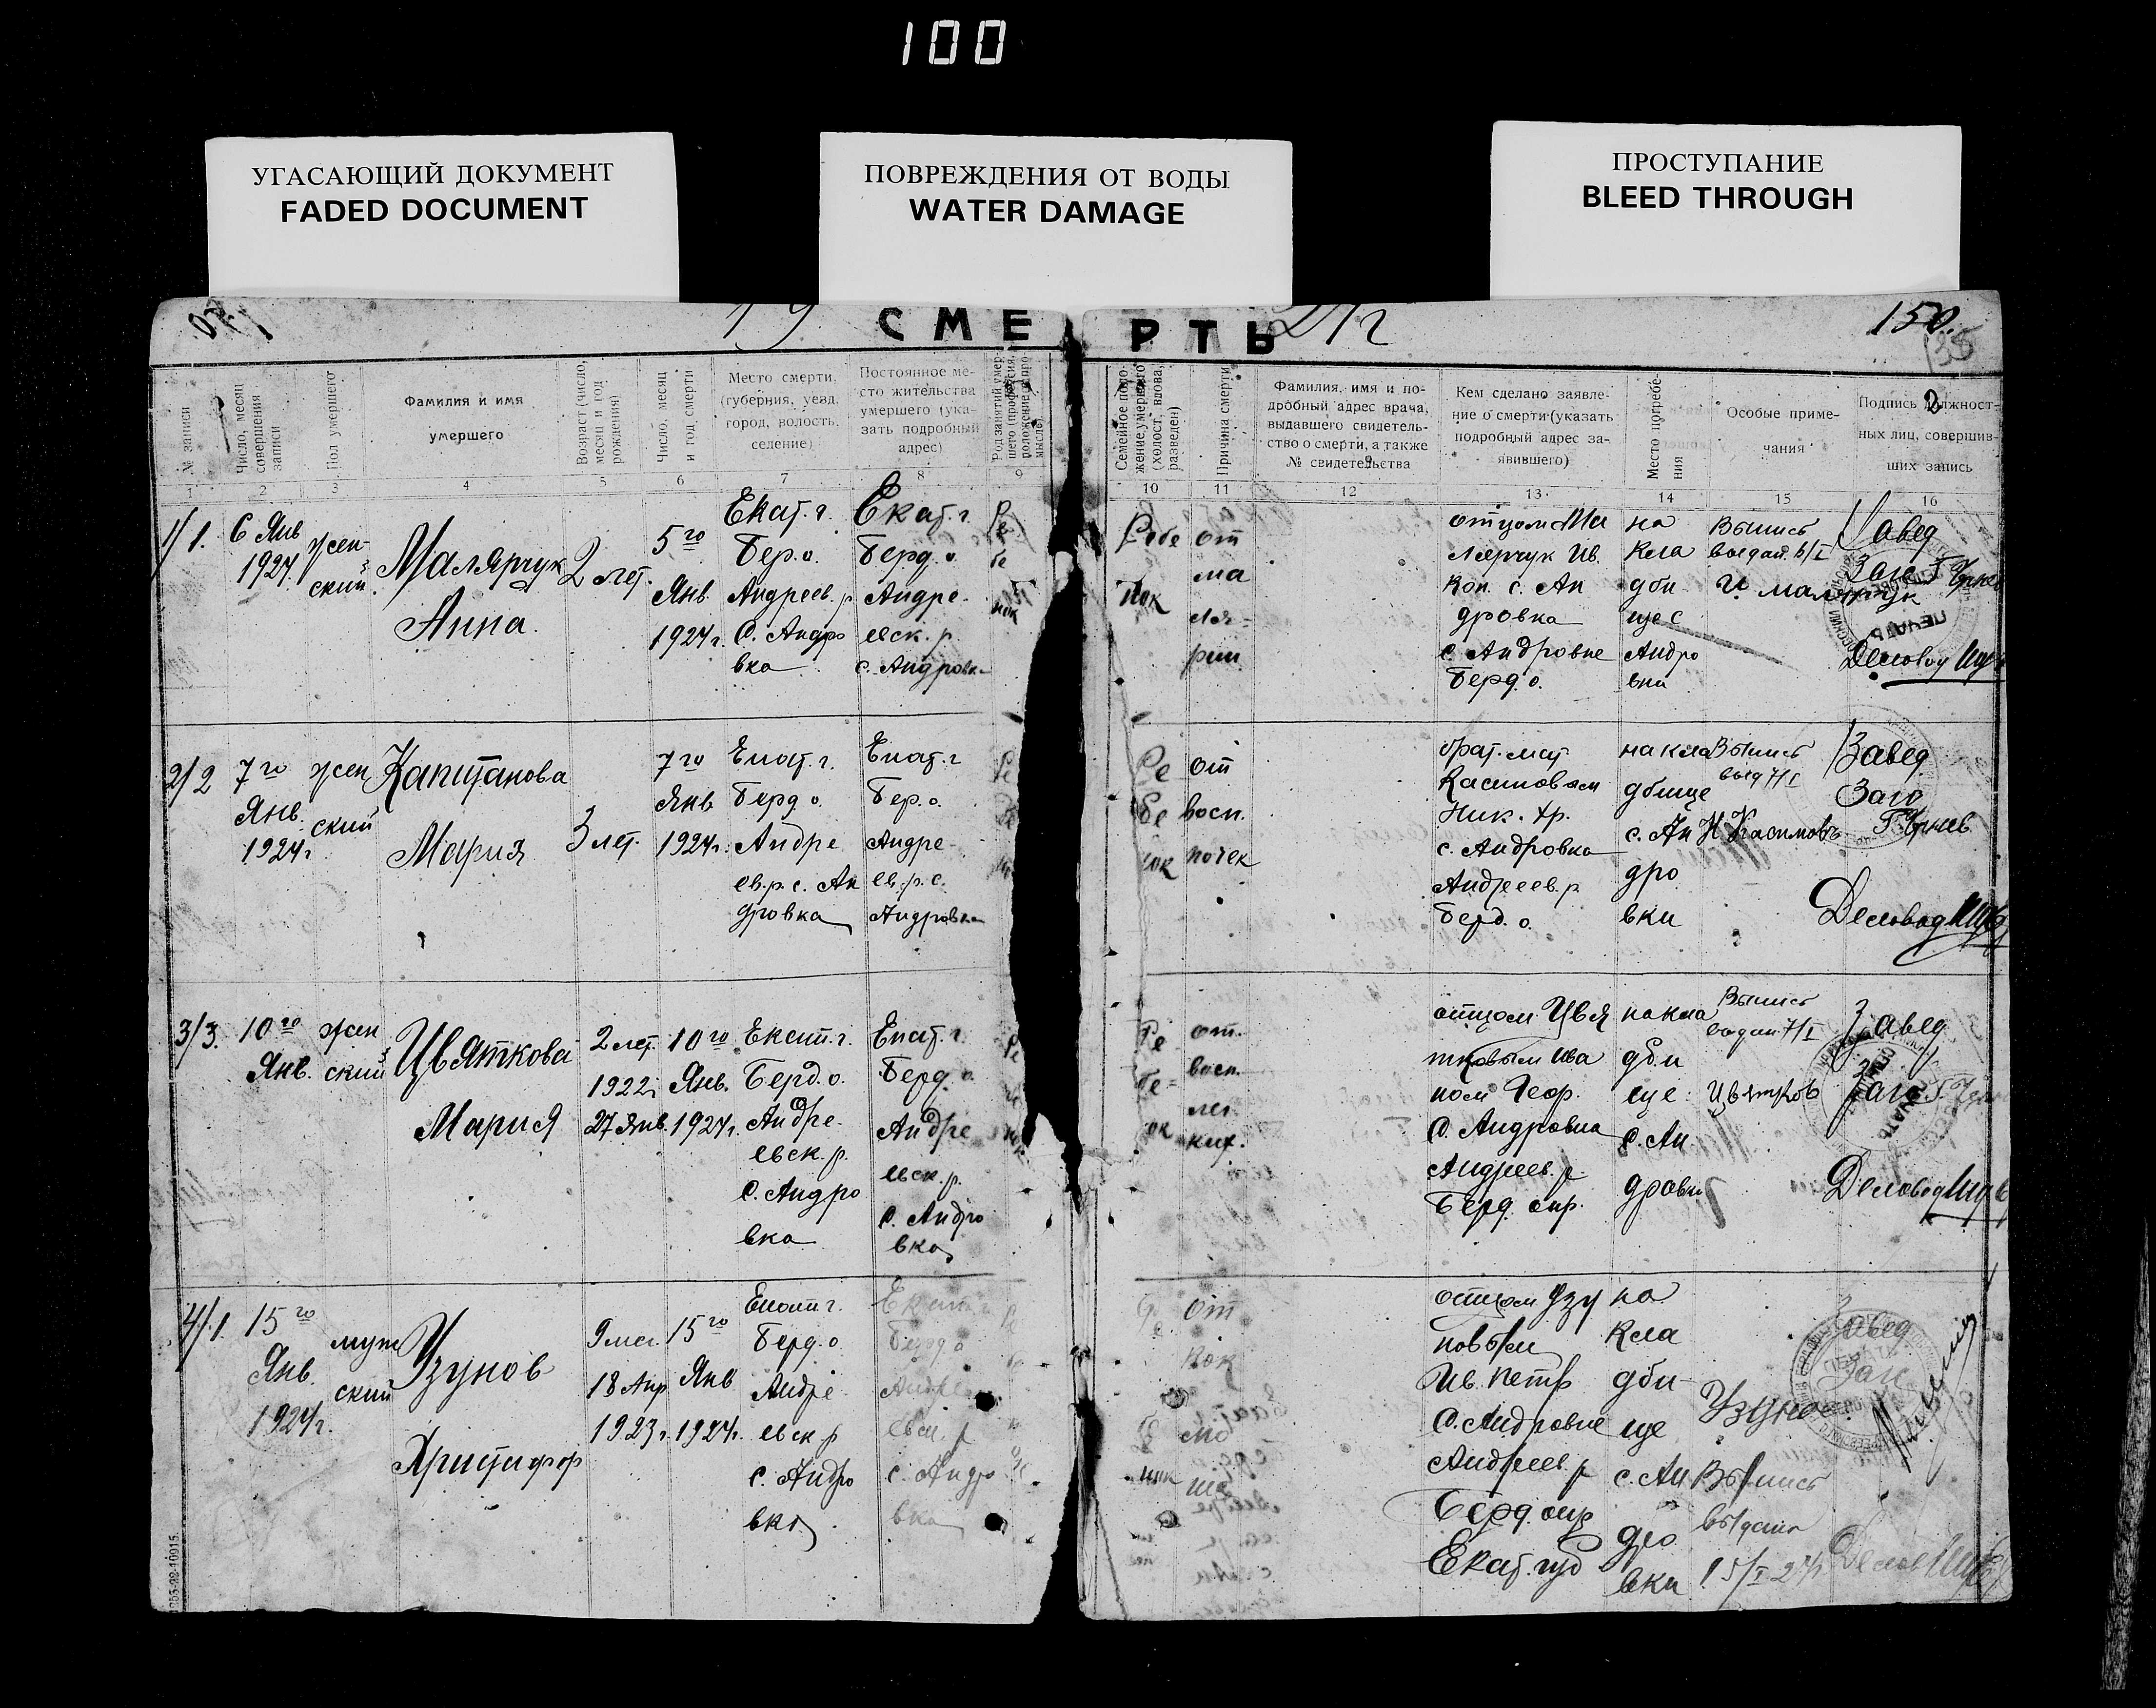 100
УГАСАЮЩИЙ ДОКУМЕНТ
FADED DOCUMENT
ПОВРЕЖДЕНИЯ ОТ ВОДЫ
WATER DAMAGE
ПРОСТУПАНИЕ
BLEED THROUGH
19 СМЕРТЬ 24 г
150.
№ записи
Число, месяц
совершения
записи
Пол умершего
Фамилия и имя
умершего
Возраст (число,
месяц и год
рождения)
Число, месяц
и год смерти
Место смерти,
(губерния, уезд,
город, волость,
селение)
Постоянное ме-
сто жительства
умершего (ука-
зать подробный
адрес)
Семейное поло-
жение умершего
(холост, вдова,
разведен)
Причина смерти
Фамилия, имя и по-
дробный адрес врача,
выдавшего свидетель-
ство о смерти, а также
№ свидетельства
Кем сделано заявле-
ние о смерти (указать
подробный адрес за-
явившего)
Место погребе-
ния
Особые приме-
чания
Подпись должност-
ных лиц, совершив-
ших запись
1 2 3 4 5 6 7 8 9 10 11 12 13 14 15 16
1/1.
6 Янв
1924
жен-
ский
Малярчук
Анна.
2 лет.
5го
Янв.
1924г.
Екат. г.
Бер. о.
Андреев. р
С. Андро
вка
Екат. г.
Берд. о.
Андре-
евск. р.
с. Андровка
Ребе
нок
от
ма
ля-
рии
отцом Ма
лярчук Ив.
Кон. с. Ан
дровка
с. Андровке
Берд. о.
на
кла
дби
ще с
Андро
вки
Выпись
выдан. 6/I
И малярчук
Завед
Загс
ПЕЧАТЬ
Деловод
2/2
7го
Янв.
1924г
жен
ский
Капитанова
Мария
3 лет.
7го
Янв
1924г.
Екат. г.
Берд о.
Андре
ев. р. с. Ан
дровка
Екат. г
Бер. о.
Андре-
ев. р. с.
Андровка
Ре
бе
нок
от
восп.
почек
брат. мат.
Касимовым
Ник. Хр.
с. Андровка
Андреев. р
Берд. о.
на кла
дбище
с. Ан
дро
вки
Выпись
выд 7/I
Н Касимовъ
Завед
Загс
Деловод
3/3.
10го
Янв.
жен
ский
Цвяткова
Мария
2 лет.
1922г
27 Янв.
10го
Янв.
1924г.
Екат. г.
Берд. о.
Андре-
евск. р.
С. Андро
вка
Екат. г.
Берд. о.
Андре
евск. р.
С. Андро
вка
Ре
бе-
нок
от.
восп.
лег.
ких.
отцом Цвя
тковым Ива
ном Геор.
С. Андровка
Андреев. р
Берд. окр.
на кла
дби
ще
С. Ан
дровки
Выпись
Цвятков
Завед
Загс
ПЕЧАТЬ
Деловод
4/1.
15го
Янв.
1924г.
муж
ский
Узунов
Христифор
9 мес.
18 Апр
1923г.
15го
Янв
1924г.
Екат г.
Берд. о
Андре-
евск р
с. Андро
вка
Екат г
Берд о
Андре
евск. р
с. Андро
вка
от
кок
лю
ша
отцом Узу
новым
Ив. Петр
С. Андровке
Андреев. р
Берд. окр
Екат. губ
на
кла
дби-
ще
с. Ан
дро
вки
Узунов
Выпись
выдана
15/I 24г
Завед
Загс
Делов